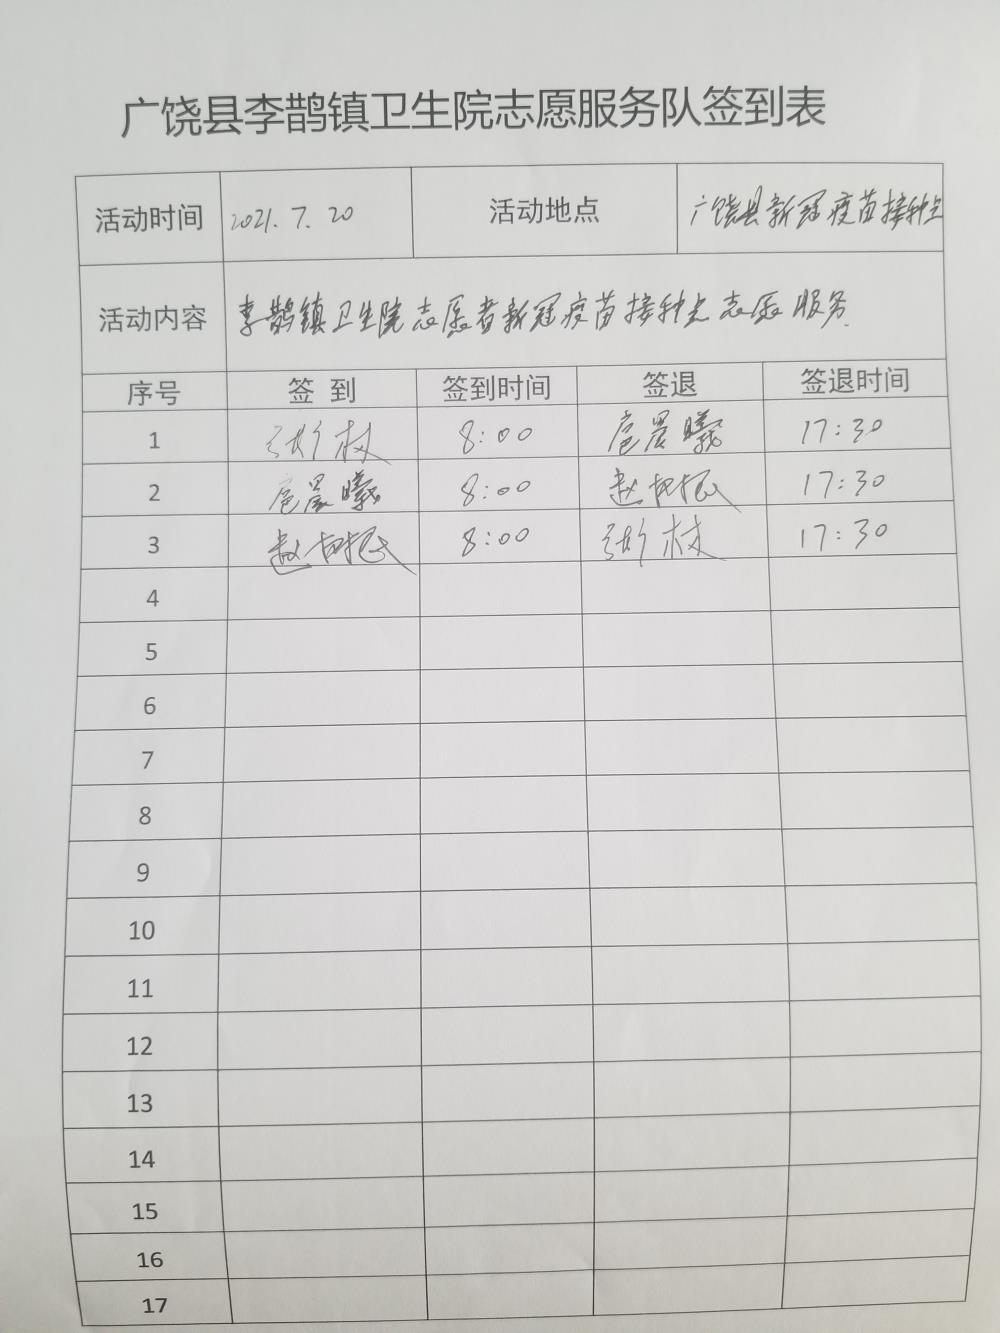 广饶县李鹊镇卫生院志愿服务队签到表
活动时间 2021.7.20 活动地点 广饶县新冠疫苗接种点
活动内容 李鹊镇卫生院志愿者新冠疫苗接种点志愿服务
序号 签到 签到时间 签退 签退时间
1 8:00 扈晨曦 17:30
2 扈晨曦 8:00 17:30
3 8:00 17:30
4
5
6
7
8
9
10
11
12
13
14
15
16
17